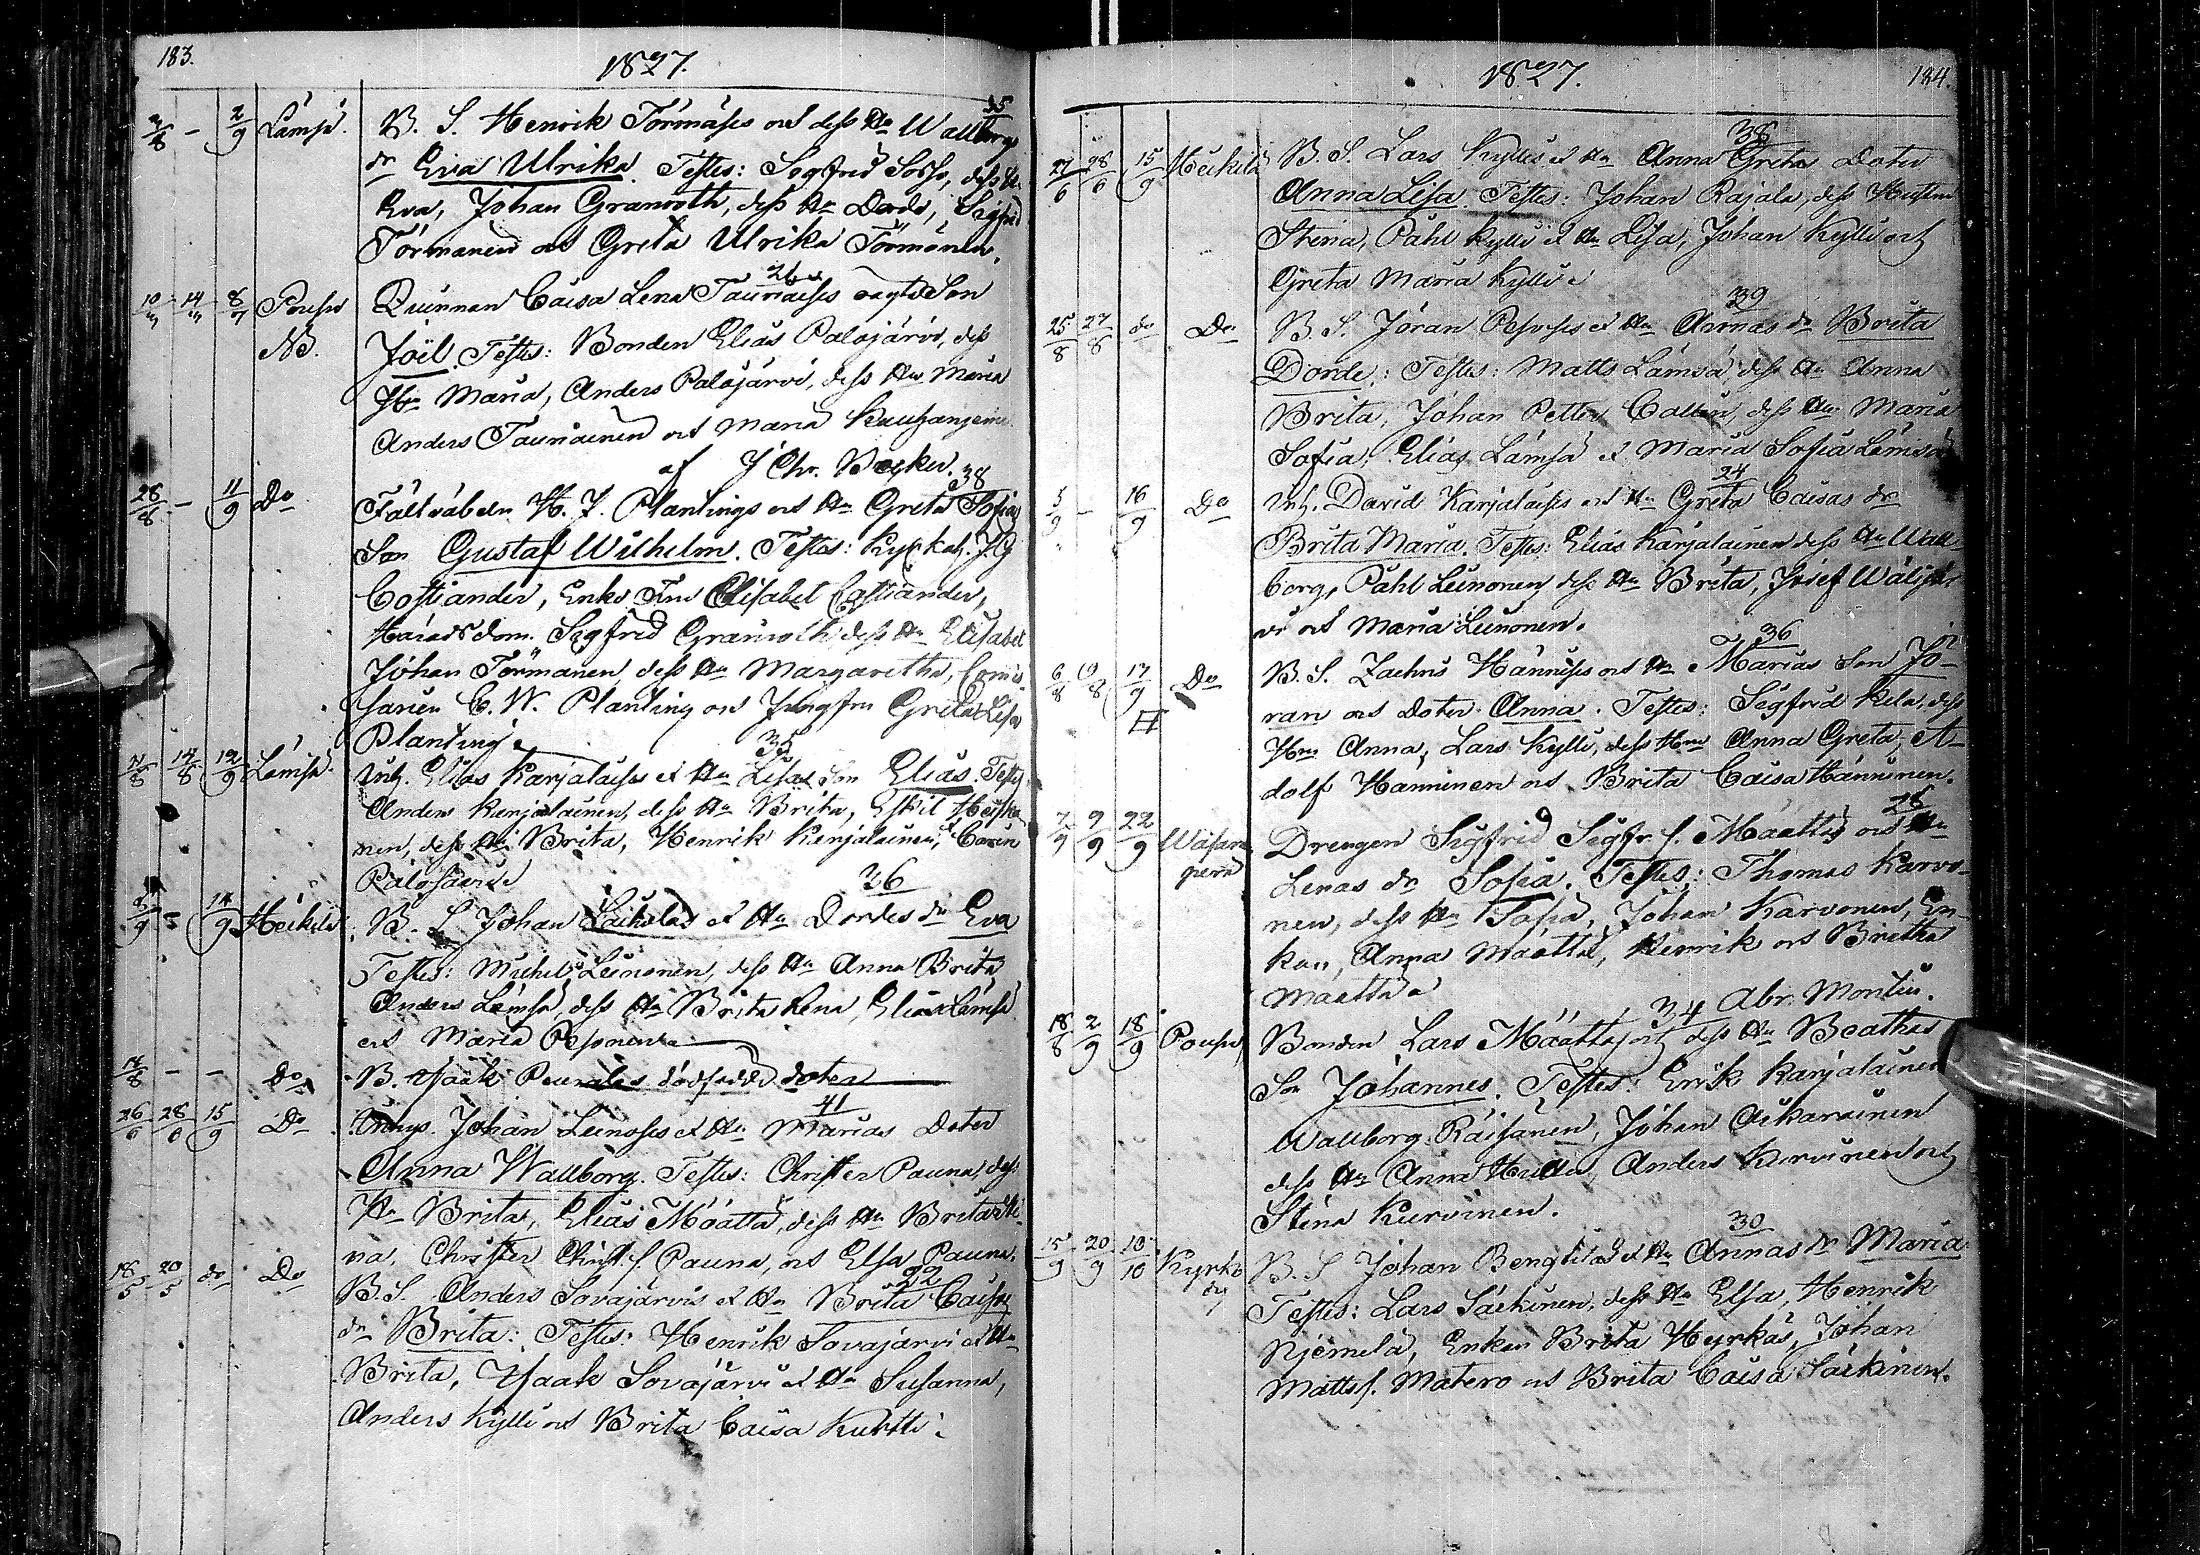 183.
1827.
2/9 Lämsä. B. S. Henrik Törmäses och dess Hu Wallborgs 35
dr Eva Ulrika. Testes: Segfrid dess Hu
Eva, Johan Granroth, dess Hu Dorde, Segfrid
Törmänen och Greta Ulrika Törmänen.
10/3 - 14/3 - 8/7 Posio Quinnan Caisa Lena Tauriaises oägta Son 26
NB. Joël. Testes: Bonden Elias Palojärvi, dess
Hu Maria, Anders Palojärvi, dess Hu Maria
Anders Tauriainen och Maria
af J Chr.
28/8 - 11/9 Do Fältväbeln H. J. Plantings och Hu Greta Sofias 38
Son Gustaf Wilhelm. Testes: Kyrk. J G
Costiander, Enke Fru Elisabet Costiander,
Häradsdom. Segfrid Granroth, dess Hu Elisabet
Johan Törmänen, dess Hu Margaretha, Comis
sarien C. W. Planting och Jungfru Greta Lisa
Planting
14/8 12/9 Lämsä. Inh. Elias Karjalaises et Hu Lisas Son Elias. Testes 35
Anders Karjalainen, dess Hu Brita, Eskil Heiska
nen, dess Hu Brita, Henrik Karjalainen, Carin
Palosaari
14/9 Heikilä B. S. Johan Laihelas et Hu Dordes dr Eva 36
Testes: Michel Leinonen, dess Hu Anna Brita
Anders Lämsä, dess Hu Brita Lena, Elias Lämsä
och Maria Pesonen
14/8 - - Do B. Isaak Peurales dödfödde doter
26/6 28/6 15/9 Do Johan Leinoses et Hu Marias Doter 41
Anna Wallborg. Testes: Christer Pauna, dess
Hu Brita, Elias Määtta, dess Hu Brita Sti-
na, Christer Christ. s. Pauna, och Elsa Pauna.
18/5 - 20/5 do Do B. S. Anders Sovajärvis et Hu Brita Caisas 22
dr Brita: Testes: Henrik Sovajärvi et Hu
Brita, Isaak Sovajärvi et Hu Susanna,
Anders Kylli och Brita Caisa Kurtti.
1827.
184.
27/6 28/6 15/9 Heikilä B. S. Lars Kyllis et Hu Anna Gretas Doter 38
Anna Lisa. Testes: Johan Rajala, dess Hustru
Stina, Påhl Kylli et Hu Lisa, Johan Kylli och
Greta Maria Kylli
25/8 27/8 do Do B. S. Jöran Pesoses et Hu Annas dr Brita 39
Dorde: Testes: Matts Lämsä, dess Hu Anna
Brita, Johan Petter dess Hu Maria
Sofia, Elias Lämsä et Maria Sofia Lämsä
5/9 - 16/9 Do Inh. David Karjalaises och Hu Greta Caisas dr 24
Brita Maria. Testes: Elias Karjalainen dess Hu Wall-
borg, Påhl Leinonen dess Hu Brita, Josef Wälijär
vi och Maria Leinonen.
6/8 17/9 Do B. S. Zachris Hännises och Hu Marias Son Jö- 36
ran och Doter Anna. Testes: Segfrid Kela, dess
Hu Anna, Lars Kylli, dess Hu Anna Greta, A-
dolf Hänninen och Brita Caisa Hänninen.
7/9 9/9 22/9 Wasaraperä Drengen Sigfrid Segfr. s. Määttäs och Hu 28
Lenas dr Sofia. Testes: Thomas Karvo-
nen, dess Hu Sofia, Johan Karvonen, En-
kan, Anna Määttä, Henrik och Brithas
Määttä
Abr. Montin.
18/8 2/9 18/9 Posio Bonden Lars Määttas och dess Hu Beathas 34
Son Johannes. Testes: Erik Karjalainen
Wallborg Räisänen, Johan Askarainen
dess Hu Anna Anders Kurvinen och
Stina Kurvinen.
15/9 20/9 10/10 Kyrkoby B. S. Johan Bengtilas et Hu Annas dr Maria 30
Testes: Lars Säckinen, dess Hu Elsa, Henrik
Niemelä, Enkan Brita Hyrkäs, Johan
Matts s. Matero och Brita Caisa Säckinen.